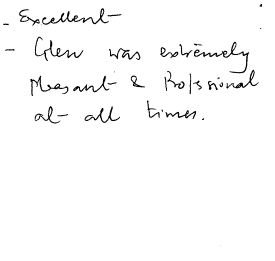 - Excellent
- Glen was extremely
pleasant & Profssional
at all times.